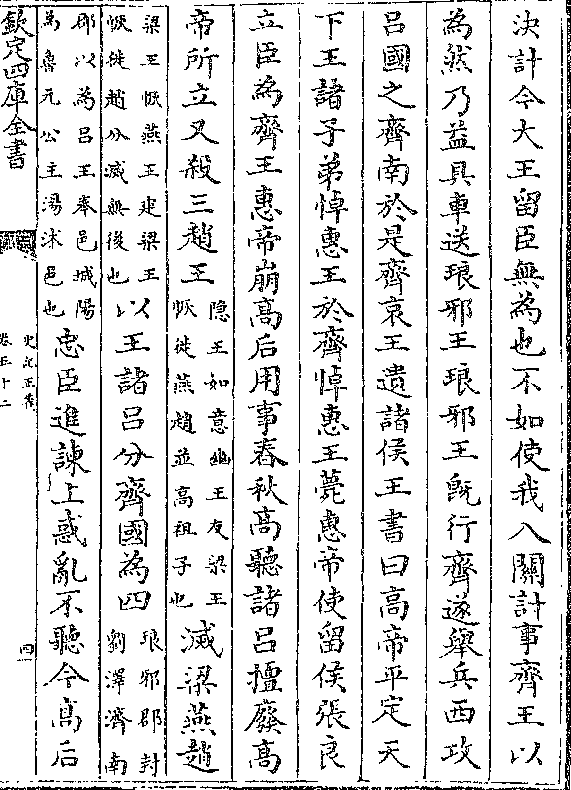 決計今大王留臣無為也不如使我入關計事齊王以
為然乃益具車送琅邪王琅邪王既行齊遂舉兵西攻
呂國之齊南於是齊哀王遺諸侯王書曰高帝平定天
下王諸子弟悼惠王於齊悼惠王薨惠帝使留侯張良
立臣為齊王惠帝崩高后用事春秋高聽諸呂擅廢高
帝所立又殺三趙王隠王如意幽王友梁王恢徙燕趙並高祖子也滅梁燕趙
梁王恢燕王建梁王恢徙趙分滅無後也以王諸呂分齊國為四琅邪郡封劉澤濟南
郡以為呂王奉邑城陽為魯元公主湯沐邑也忠臣進諫上惑亂不聽今高后
欽定四庫全書
史記正義
卷五十二
四